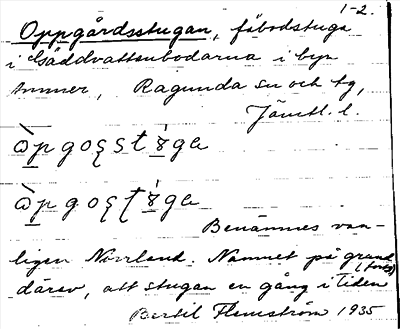 1-2.
Oppgårdsstugan, fäbodstuga
i Gäddvattenbodarna i byn
Ammer, Ragunda sn och tg,
Jämtl. l.
Benämnes van-
ligen Norrland. Namnet på grund
(förts)
därav, att stugan en gång i tiden
Bertil Flemström 1935